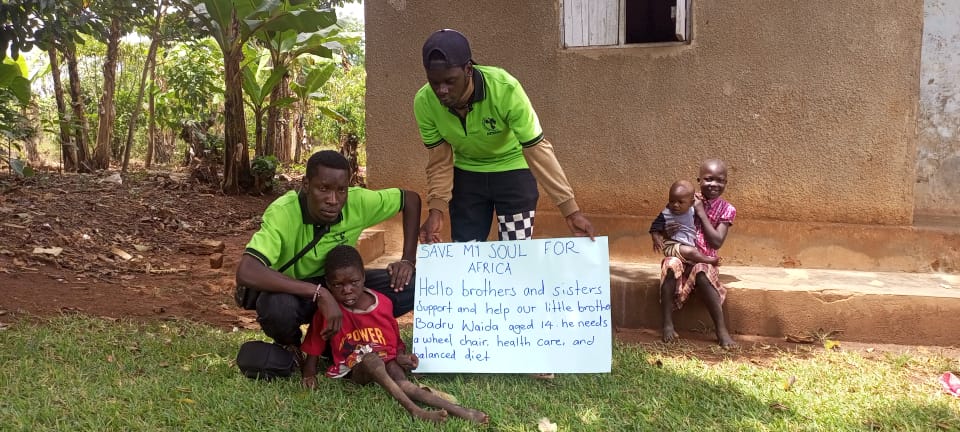 SAVE MY SOUL FOR
AFRICA
Hello brothers and sisters
Support and help our little brother
Badru Waida aged 14. he needs
a wheel chair, health care, and
balanced diet
POWER